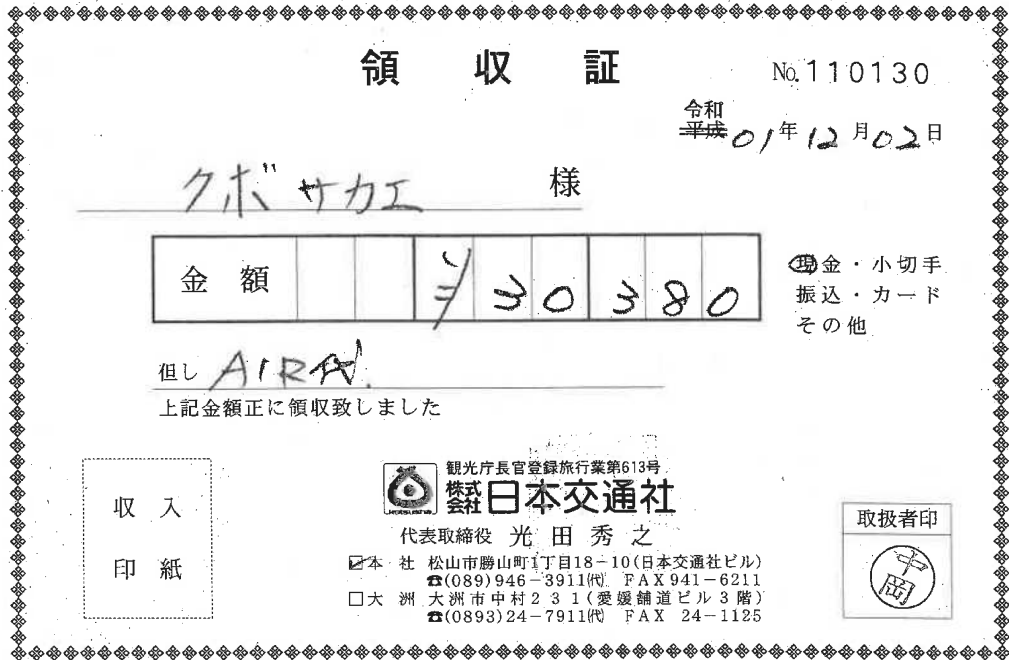 領収証
No.110130
令和
平成 01年12月02日
クボ サカエ 様
金額 ¥30380
現金・小切手
振込・カード
その他
但し AIR代.
上記金額正に領収致しました
収入
印紙
観光庁長官登録旅行業第613号
株式会社 日本交通社
代表取締役 光田秀之
☑本社 松山市勝山町1丁目18-10(日本交通社ビル)
☎(089)946-3911㈹ FAX 941-6211
□大洲 大洲市中村231(愛媛舗道ビル3階)
☎(0893)24-7911㈹ FAX 24-1125
取扱者印
中岡